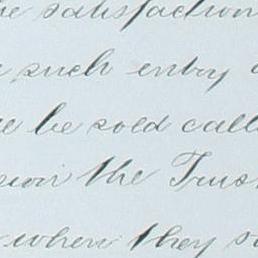 the satisfaction
such entry
be sold call
on the Trus
when they s